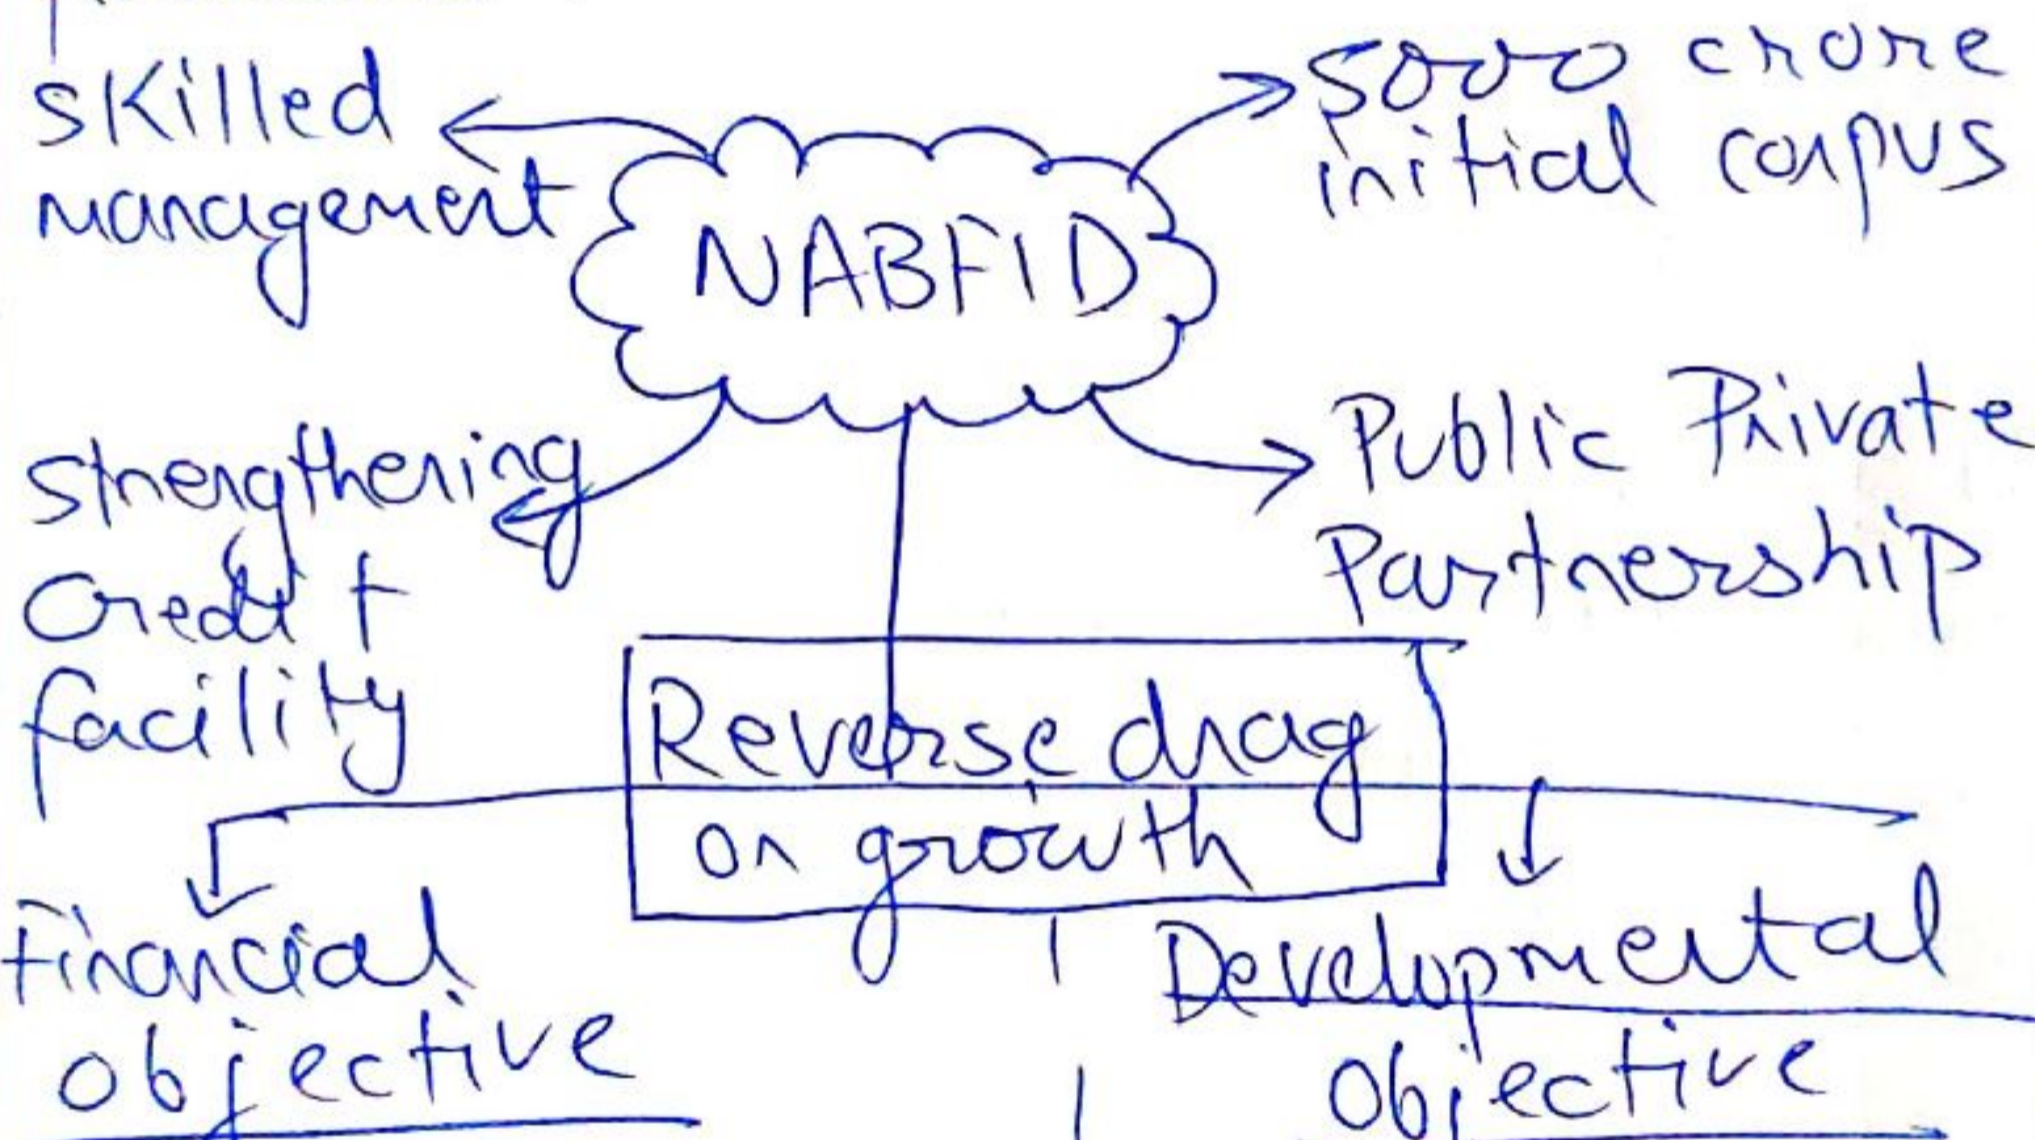 skilled
management
NABFID
5000 crore
initial corpus
strengthening
credit
facility
Public Private
Partnership
Reverse drag
on growth
Financial
objective
Developmental
Objective